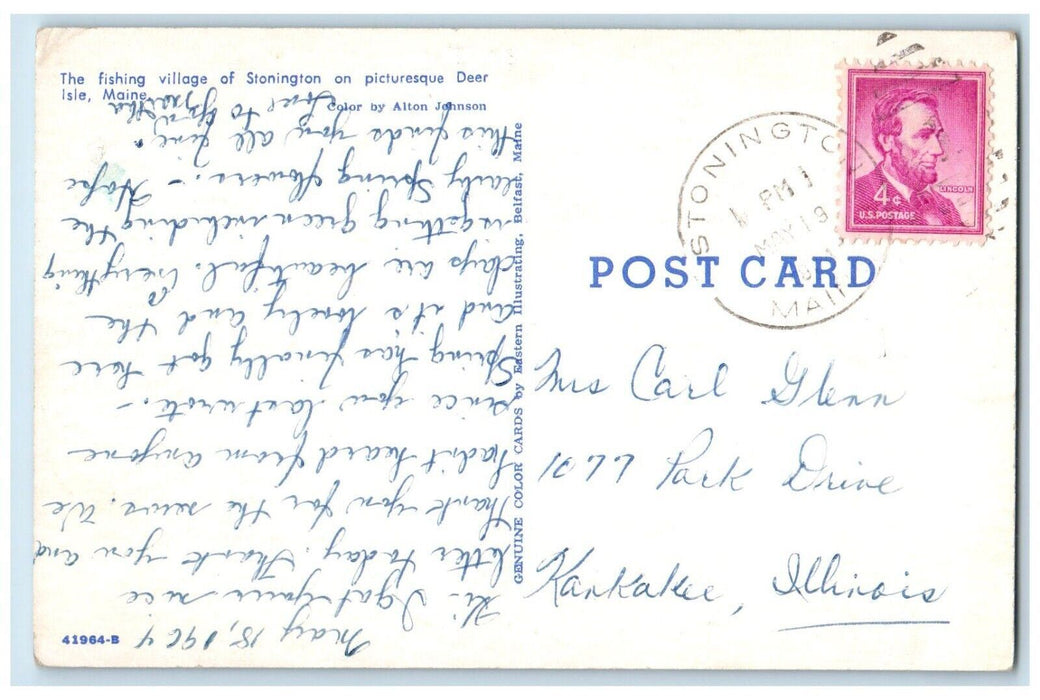 The fishing village of Stonington on picturesque Deer
Isle, Maine.
Color by Alton Johnson
May 18, 1964
Hi. I got your nice
letter today. Thank you and
thank you for the news. We
hadn't heard from anyone
since you last wrote. -
Spring has finally got here
and it's lovely and the
days are beautiful. Everything
is getting green including the
early Spring flowers. - Hope
this finds you all fine.
Love to you all
Martha
41964-B
GENUINE COLOR CARDS by Eastern Illustrating, Belfast, Maine
STONINGTON
PM
MAY 18
MAINE
4¢
LINCOLN
U.S. POSTAGE
POST CARD
Mrs Carl Glenn
1077 Park Drive
Kankakee, Illinois